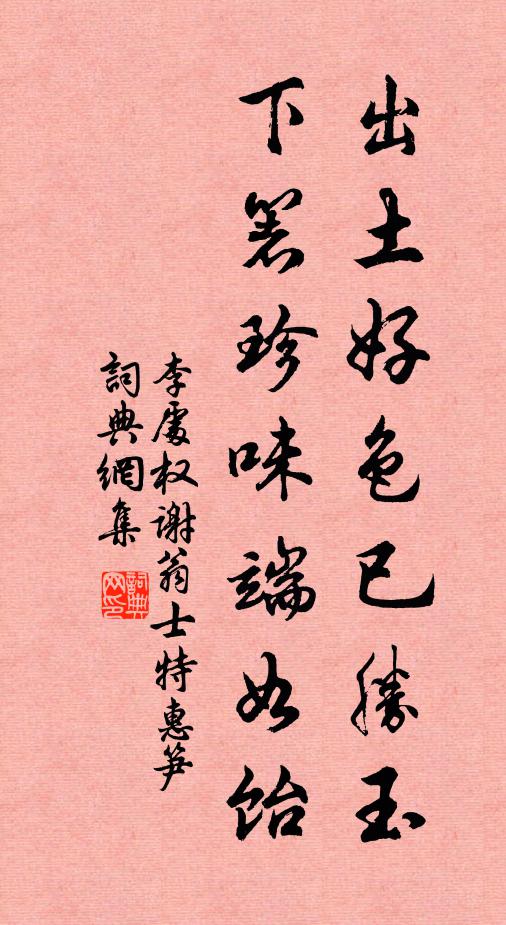 出土好色已勝玉
下箸珍味端如飴
李處权謝翁士特惠笋
詞典網集
詞典网印